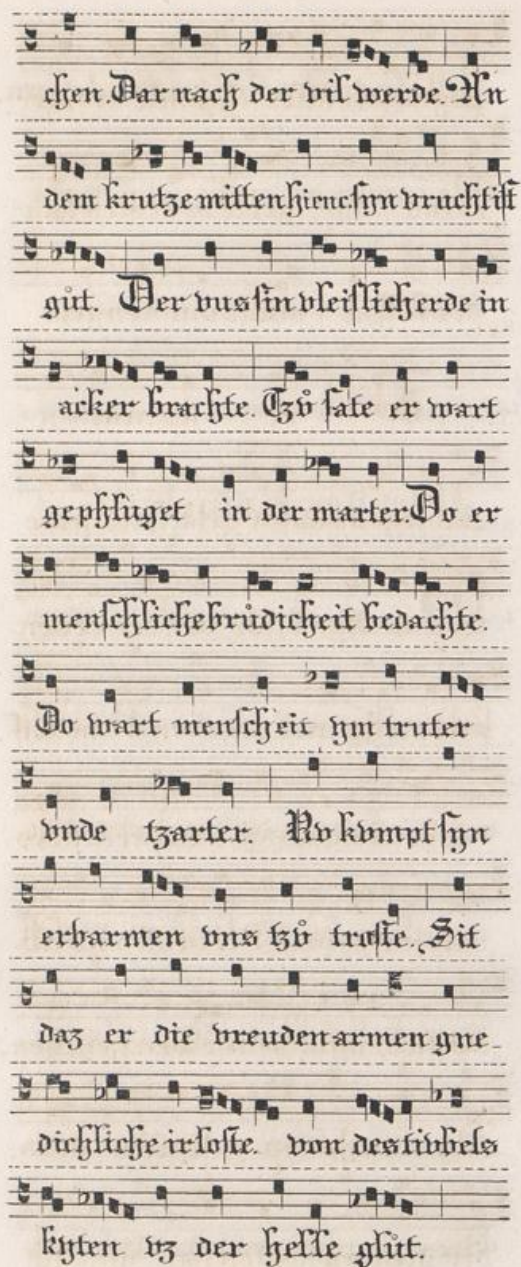 chen. Dar nach der vil werde. An
dem krutze mitten hienc syn vrucht ist
gůt. Der vns sin vleislich erde in
acker brachte. Tzů sate er wart
gephluget in der marter. Do er
menschliche brůdicheit bedachte.
Do wart menscheit ym truter
vnde tzarter. Nv kvmpt syn
erbarmen vns tzů troste. Sit
daz er die vreuden armen gne-
dichliche irloste. von des tivbels
kyten vz der helle glůt.